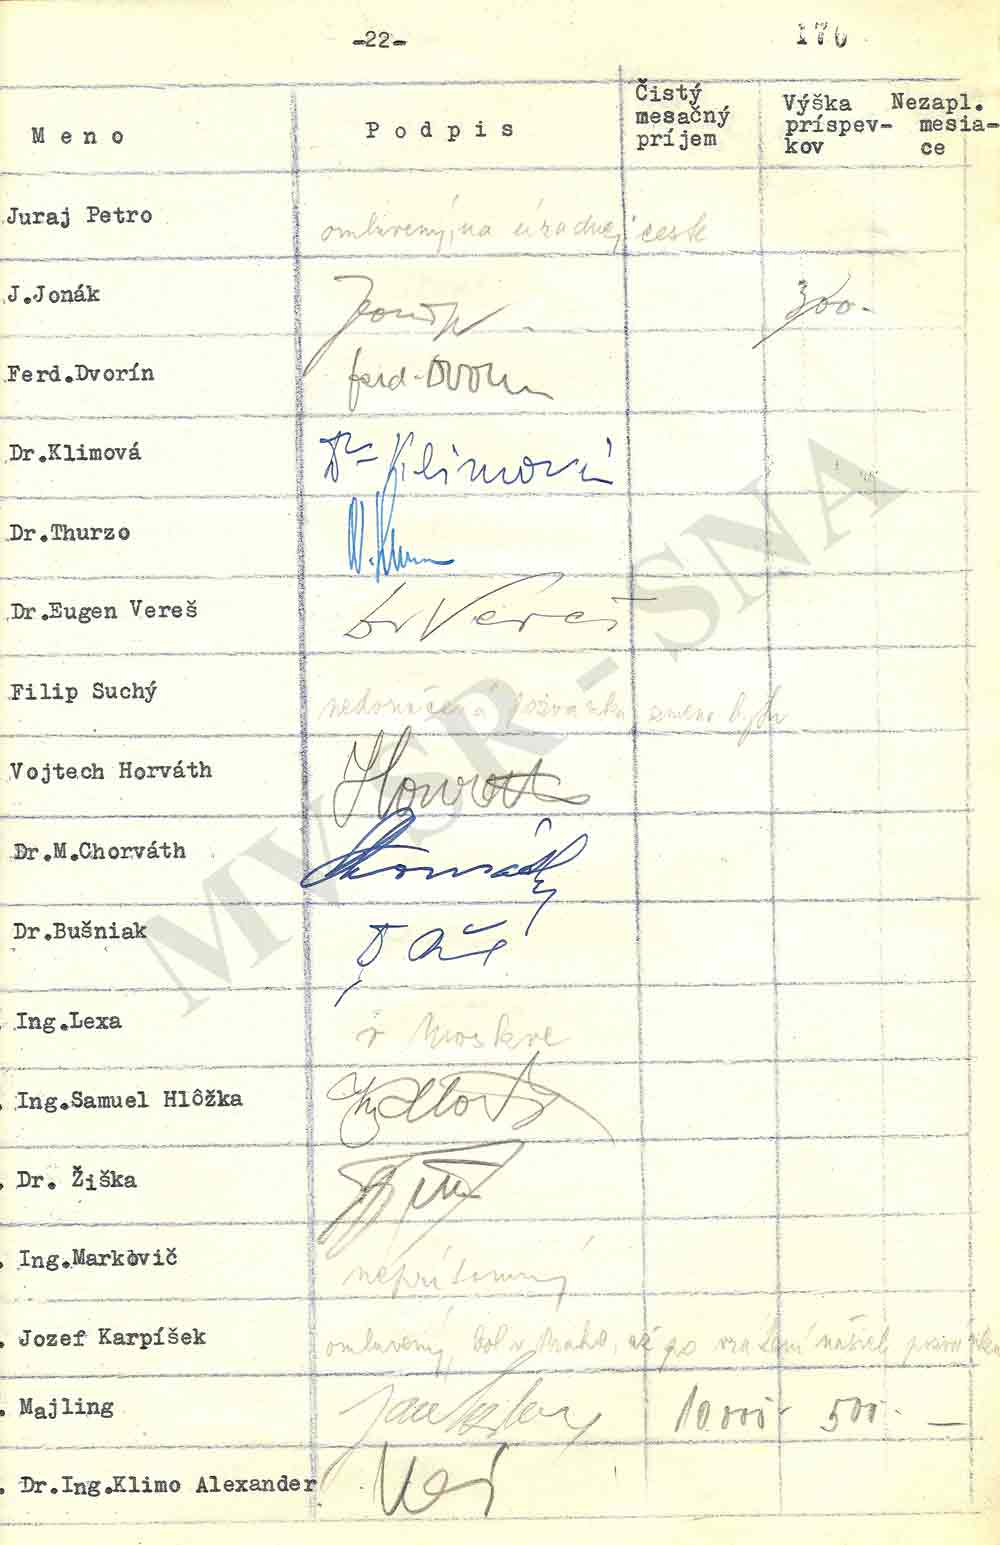 -22-
176
Meno
Podpis
Čistý mesačný príjem
Výška príspev- kov
Nezapl. mesia- ce
Juraj Petro omluvený, na úradnej ceste
J.Jonák 300.-
Ferd.Dvorín Ferd. Dvorin
Dr.Klimová Dr Klimová
Dr.Thurzo
Dr.Eugen Vereš Dr Vereš
Filip Suchý nedoručená pozvánka, zmena bytu
Vojtech Horváth Horváth
Dr.M.Chorváth Chorváth
Dr.Bušniak
Ing.Lexa v Moskve
Ing.Samuel Hlôžka
Dr. Žiška
Ing.Markovič neprítomný
Jozef Karpíšek omluvený, bol v Prahe, až po vrátení našich
Majling 10.000- 500.- —
Dr.Ing.Klimo Alexander
MV SR - SNA